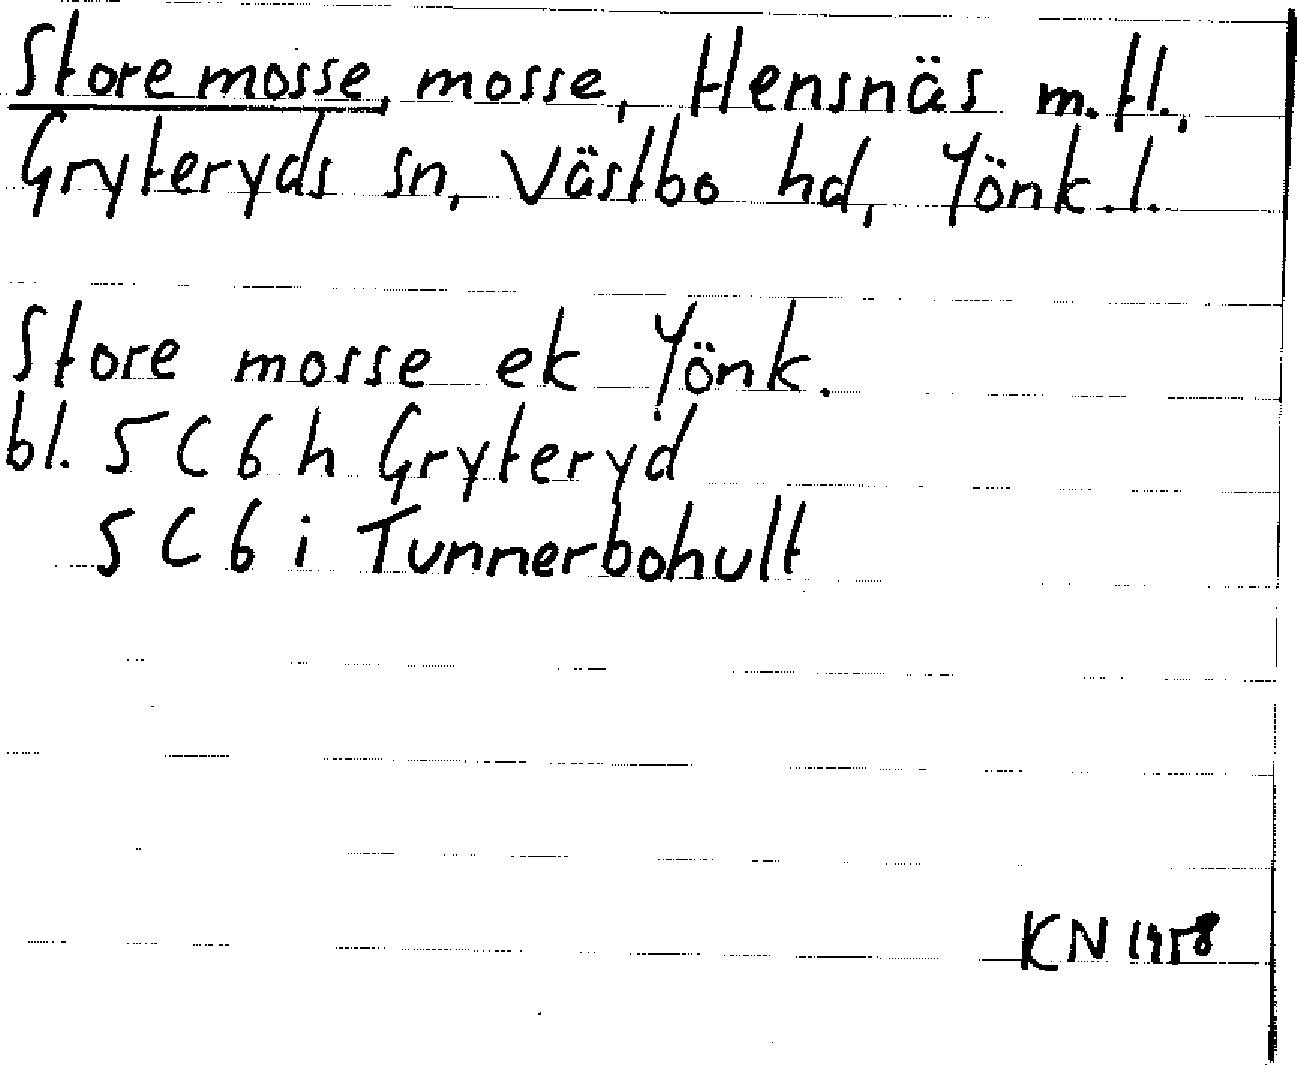 Store mosse, mosse, Hensnäs m.fl.,
Gryteryds sn, Västbo hd, Jönk.l.
Store mosse ek Jönk.
bl. 5 C 6 h Gryteryd
5 C 6 i Tunnerbohult
KN 1958